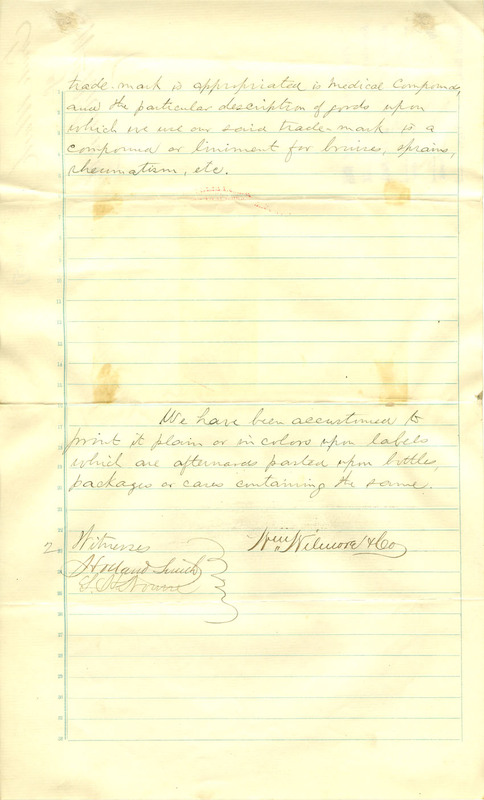 trade-mark is appropriated is Medical Compounds,
and the particular description of goods upon
which we use our said trade-mark is a
compound or liniment for bruises, sprains,
rheumatism, etc.
We have been accustomed to
print it plain or in colors upon labels
which are afterwards pasted upon bottles,
packages or cases containing the same.
2 Witnesses
Wm. Wilmore & Co
Holland Smith